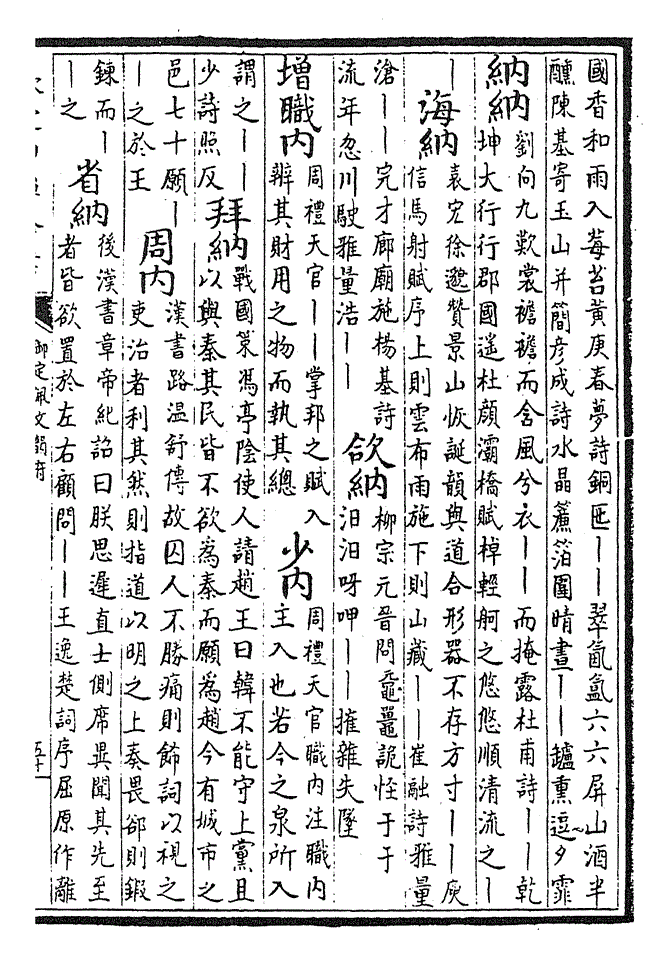 國香和雨入莓苔黄庚春夢詩銅匜丨丨翠氤氳六六屏山酒半
醺陳基寄玉山并簡彦成詩水晶簾箔圍晴晝丨丨鑪熏逗夕霏
納納
劉向九歎裳襜襜而含風兮衣丨丨而掩露杜甫詩丨丨乾
坤大行行郡國遥杜頠灞橋賦棹輕舸之悠悠順清流之丨
丨
海納
袁宏徐邈贊景山恢誕韻與道合形器不存方寸丨丨庾
信馬射賦序上則雲布雨施下則山藏丨丨崔融詩雅量
滄丨丨完才廊廟施楊基詩
流年忽川駛雅量浩丨丨
欱納
柳宗元晉問黿鼉詭怪于于
汩汩呀呷丨丨摧雜失墜
增職內
周禮天官丨丨掌邦之賦入
辨其財用之物而執其總
少內
周禮天官職內注職內
主入也若今之泉所入
謂之丨丨
少詩照反
拜納
戰國策馮亭陰使人請趙王曰韓不能守上黨且
以與秦其民皆不欲為秦而願為趙今有城市之
邑七十願丨
丨之於王
周內
漢書路温舒傳故囚人不勝痛則飾詞以視之
吏治者利其然則指道以明之上奏畏卻則鍛
鍊而丨
丨之
省納
後漢書章帝紀詔曰朕思遲直士側席異聞其先至
者皆欲置於左右顧問丨丨王逸楚詞序屈原作離
御定佩文韻府